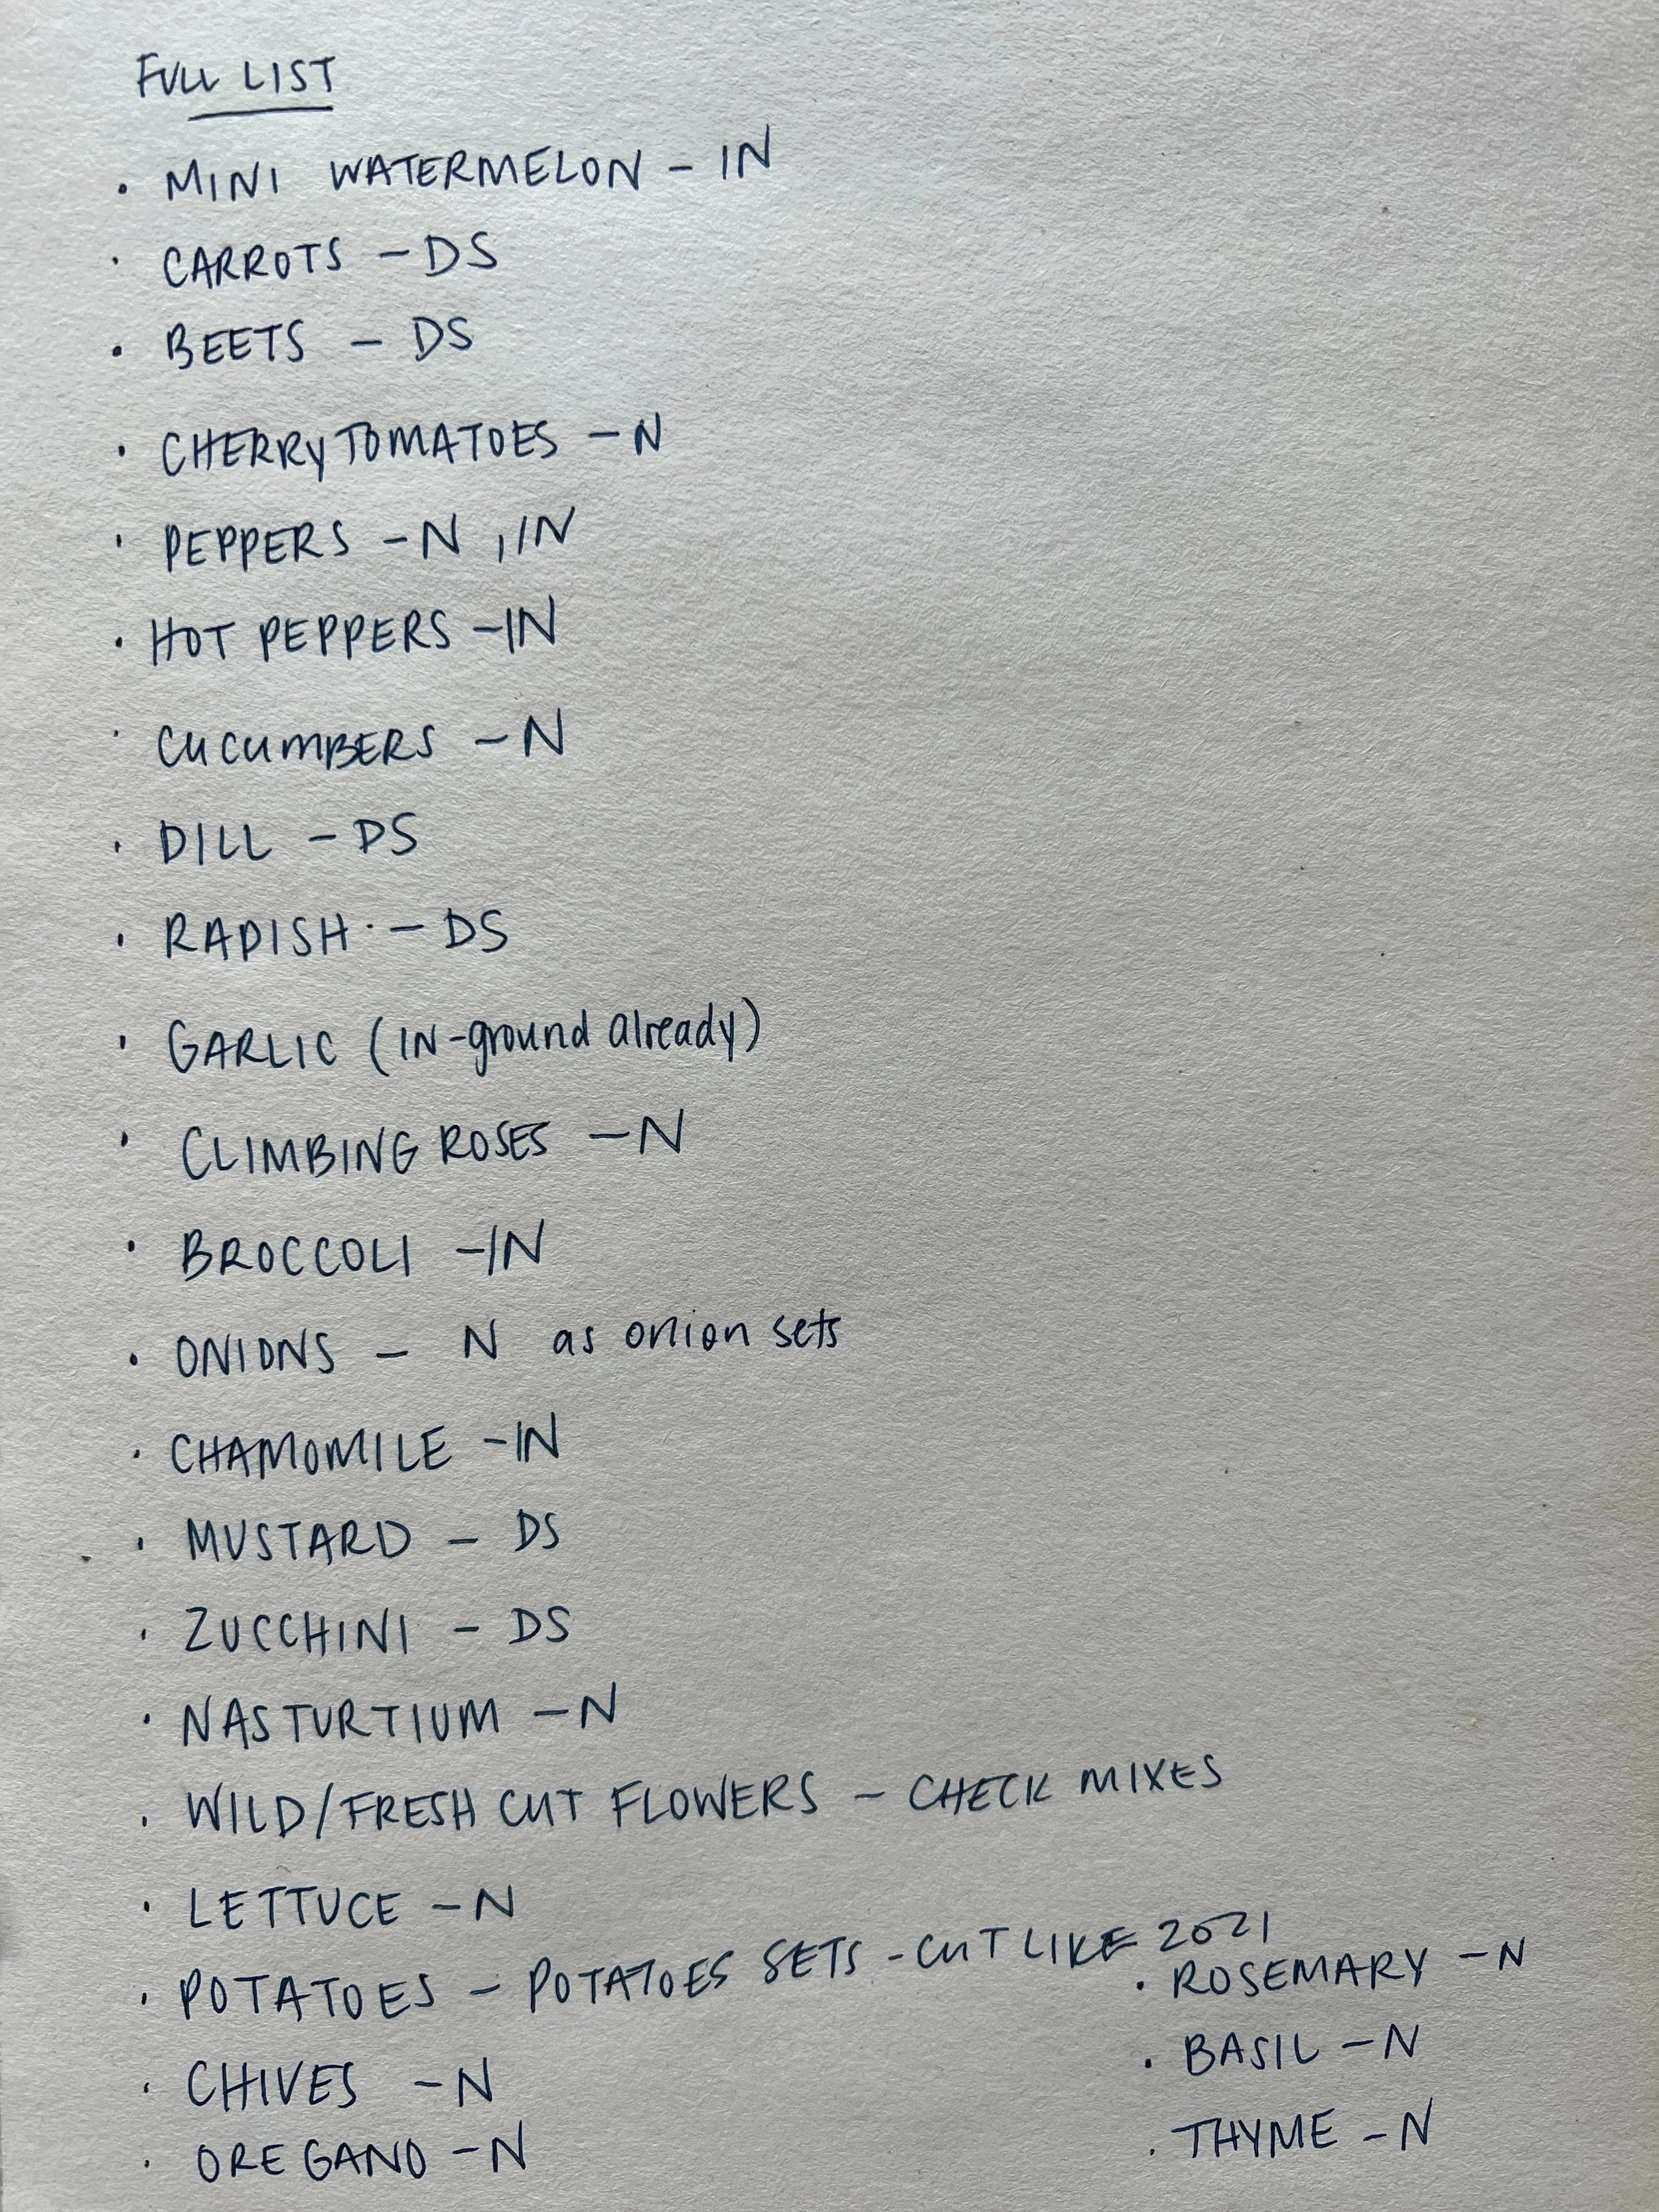 FULL LIST
• MINI WATERMELON - IN
• CARROTS - DS
• BEETS - DS
• CHERRY TOMATOES - N
• PEPPERS - N, IN
• HOT PEPPERS - IN
• CUCUMBERS - N
• DILL - DS
• RADISH - DS
• GARLIC (IN-ground already)
• CLIMBING ROSES - N
• BROCCOLI - IN
• ONIONS - N as onion sets
• CHAMOMILE - IN
• MUSTARD - DS
• ZUCCHINI - DS
• NASTURTIUM - N
• WILD/FRESH CUT FLOWERS - CHECK MIXES
• LETTUCE - N
• POTATOES - POTATOES SETS - CUT LIKE 2021
• CHIVES - N
• OREGANO - N
• ROSEMARY - N
• BASIL - N
• THYME - N